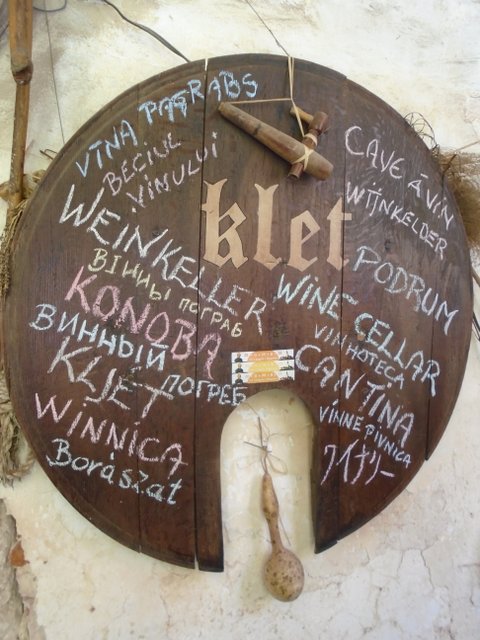 VĪNA PAGRABS
BECIUL
VINULUI
WEINKELLER
ВІННЫ ПОГРАБ
KONOBA
ВИННЫЙ
ПОГРЕБ
KLJET
WINNICA
Borászat
klet
CAVE À VIN
WIJNKELDER
PODRUM
WINE-CELLAR
VINHOTECA
CANTINA
VINNE PIVNICA
ワイナリー